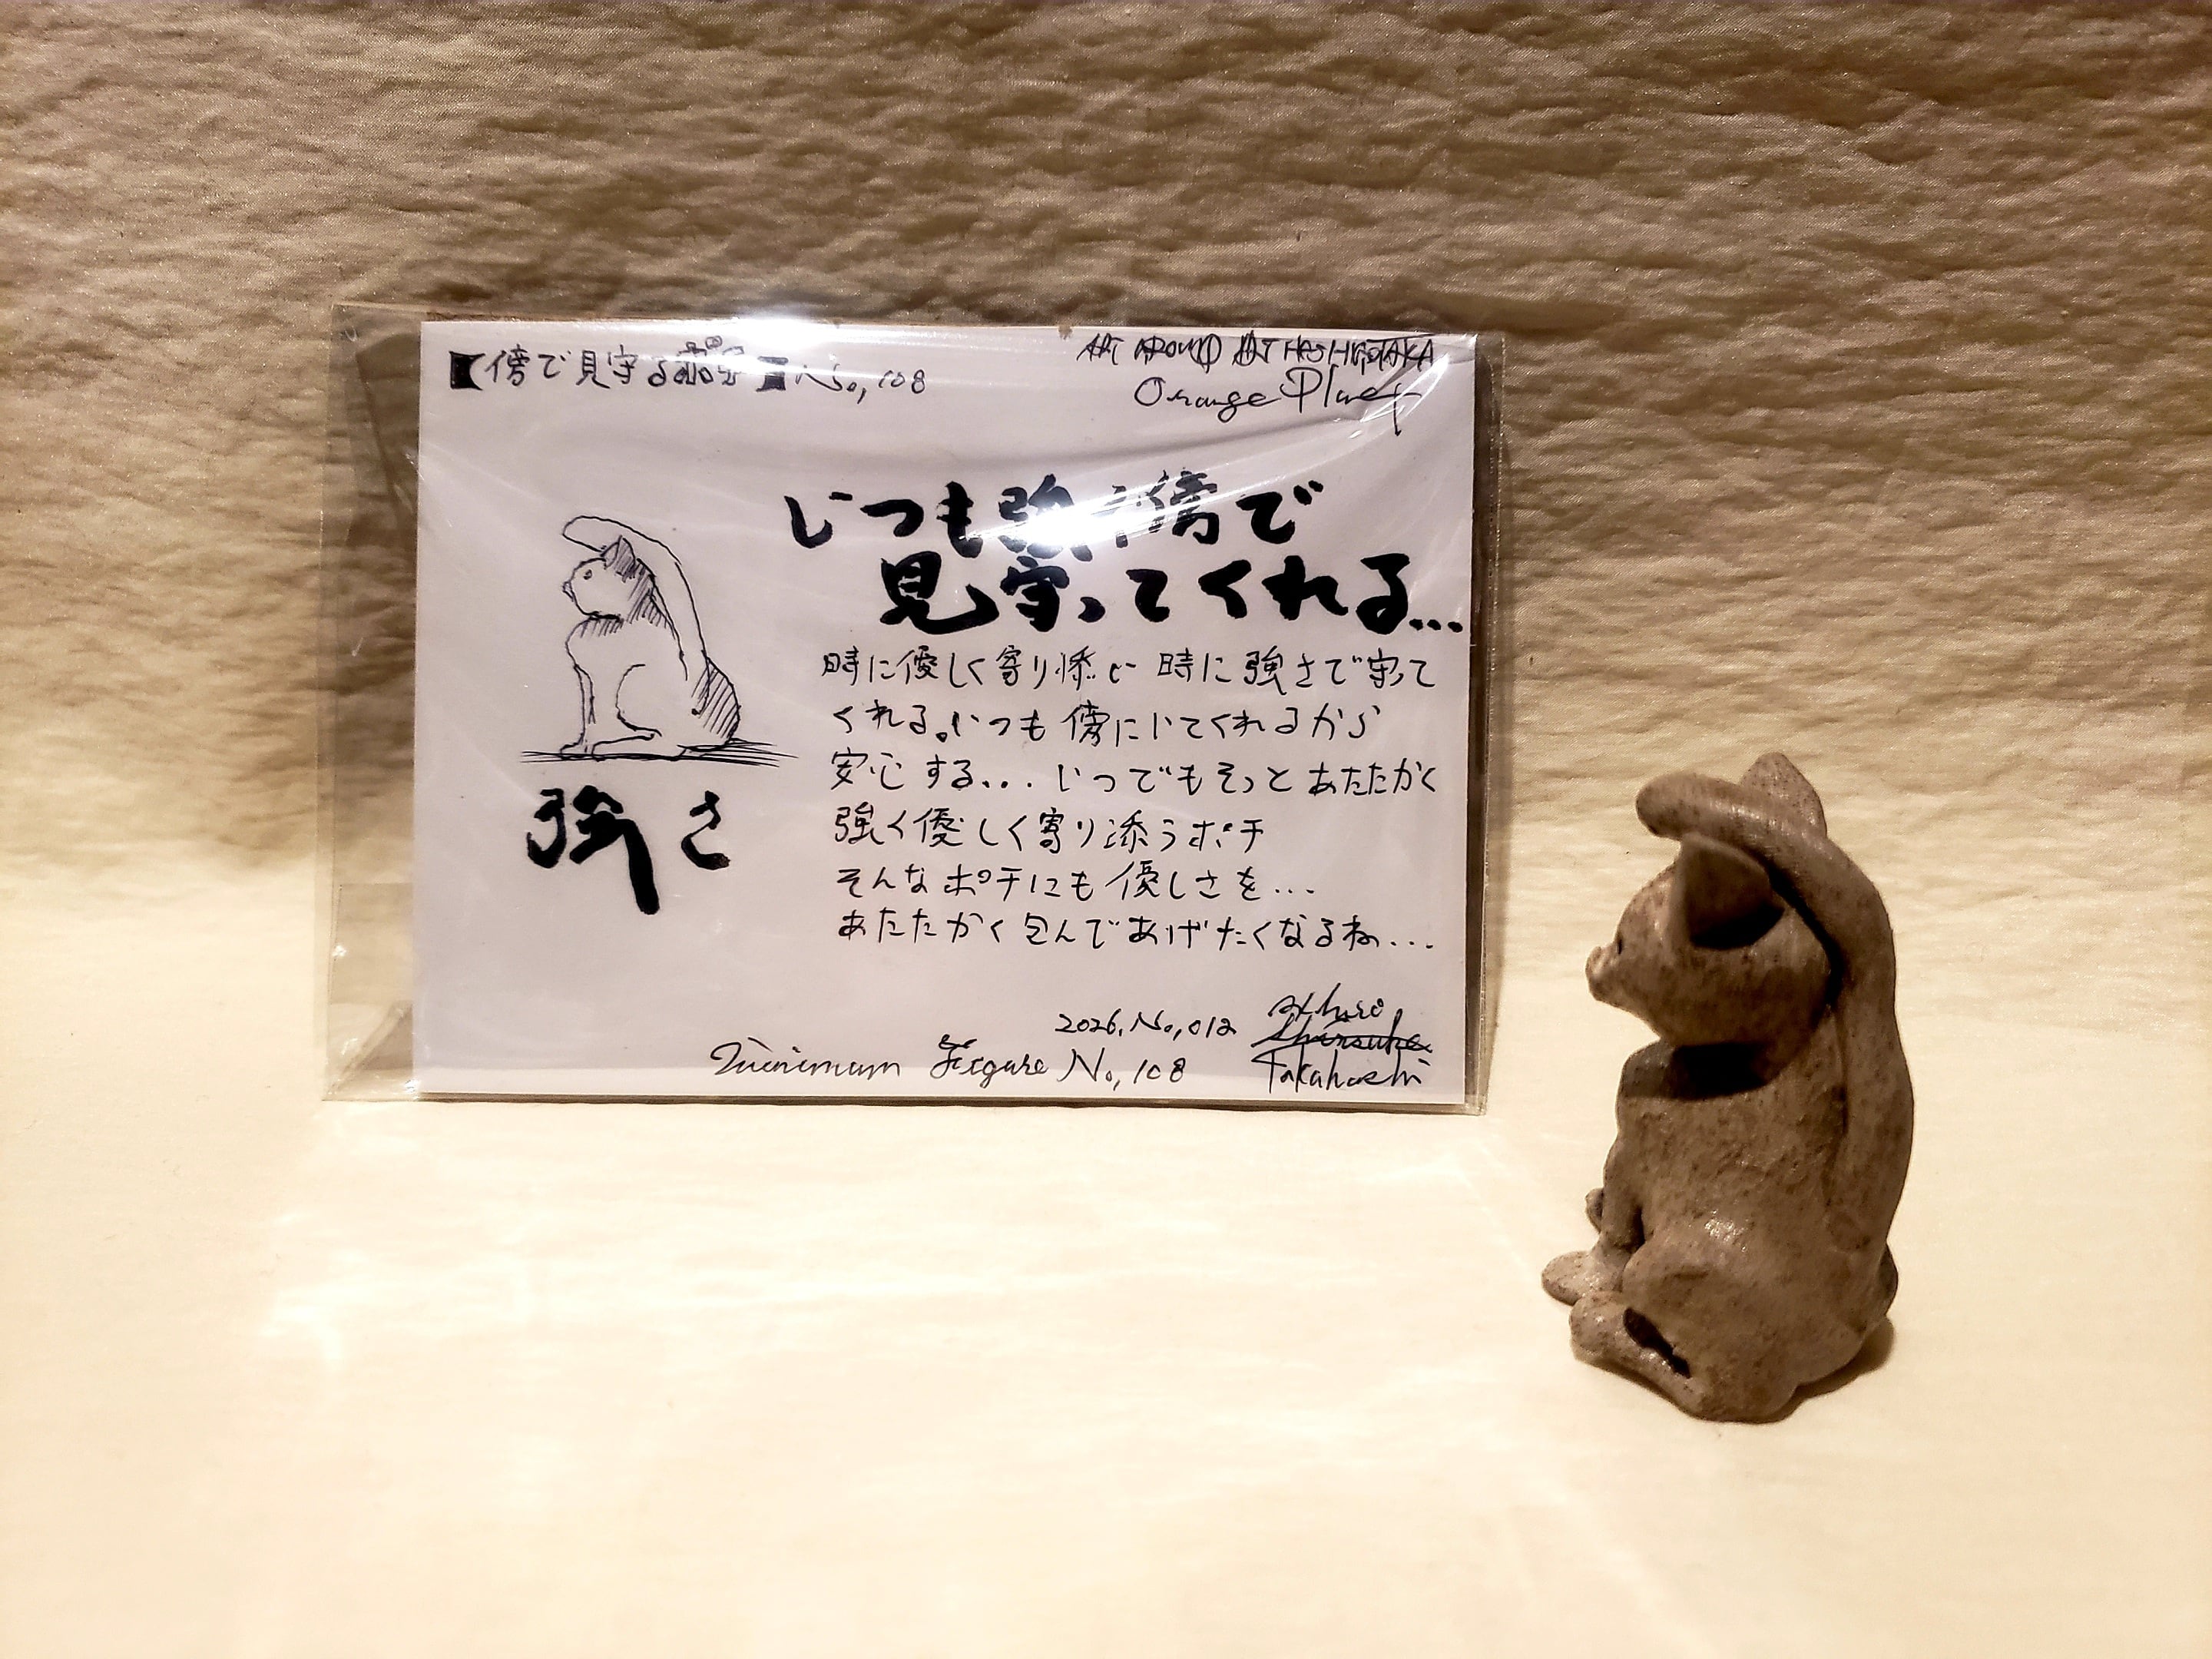 【傍で見守るポチ】No,108
ART AROUND ART
Orange Planet
いつも強く傍で
見守ってくれる...
時に優しく寄り添い 時に強さで守って
くれる。いつも傍にいてくれるから
安心する... いつでもそっとあたたかく
強く優しく寄り添うポチ
そんなポチにも優しさを...
あたたかく包んであげたくなるね...
強さ
2026.No,012
Takahashi
Minimum Figure No,108